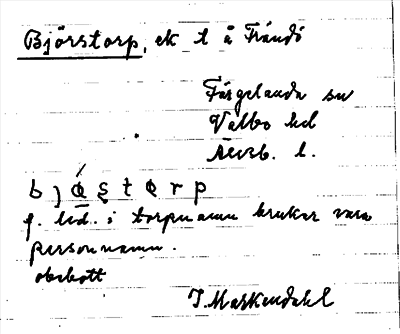 Björstorp, ek t å Frändö
Färgelanda sn
Valbo hd
Älvsb. l.
bjɷ́s̨torp
f. led. i torpnamn brukar vara
personnamn.
obebott
I. Markendahl